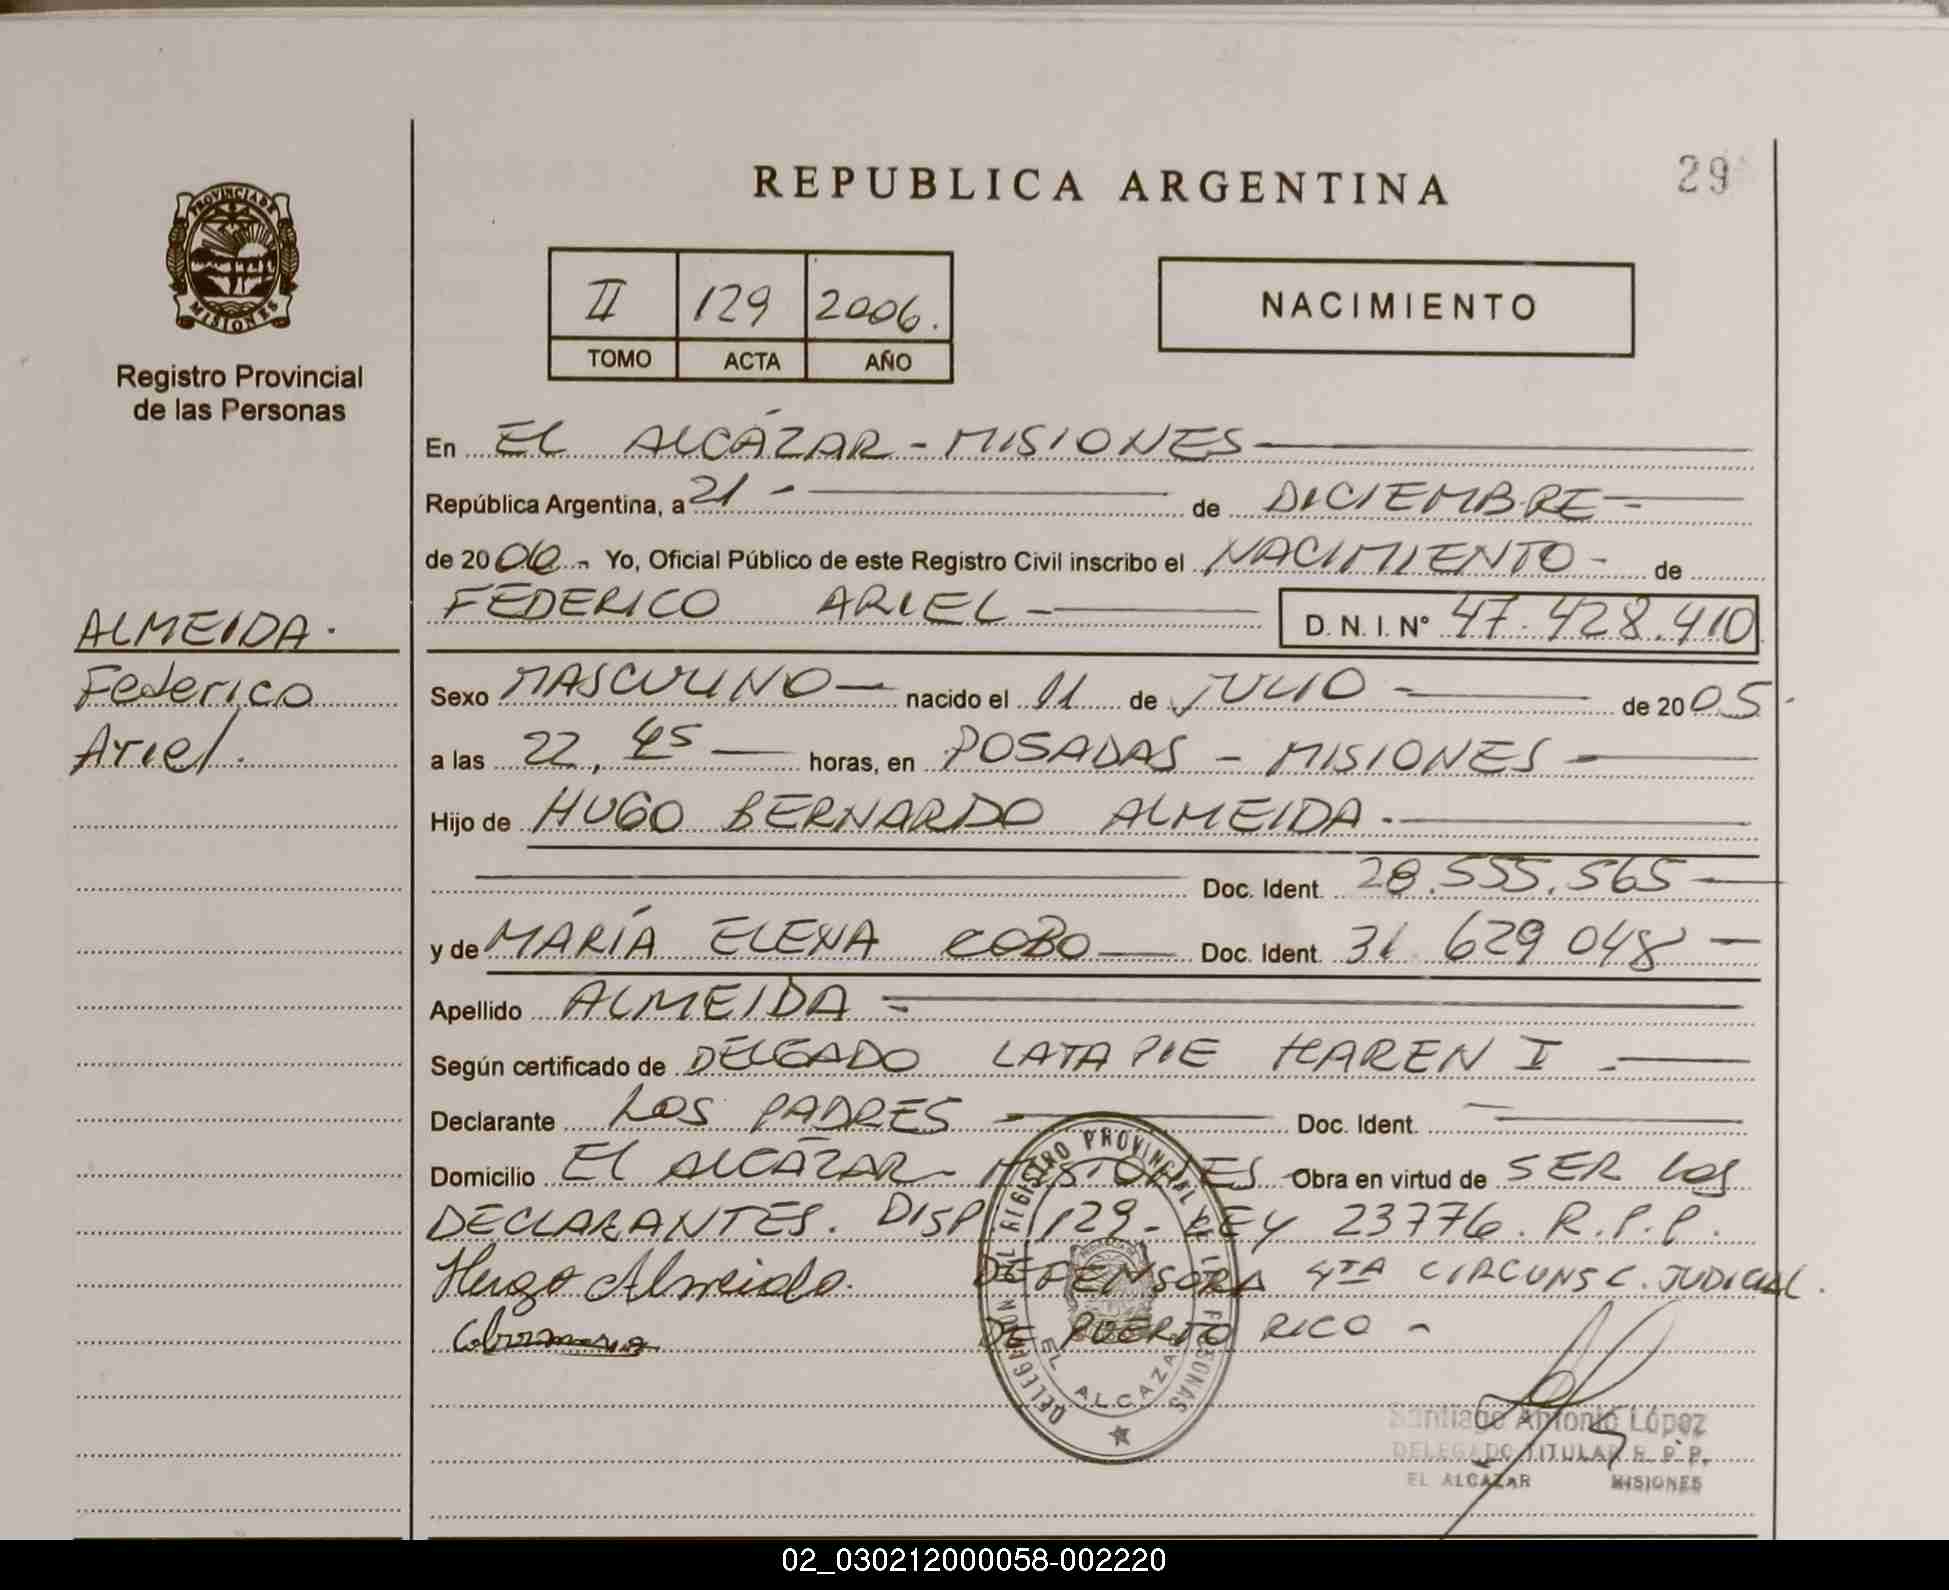 REPUBLICA ARGENTINA
29
PROVINCIA DE
MISIONES
Registro Provincial
de las Personas
II 129 2006.
TOMO ACTA AÑO
NACIMIENTO
En EL ALCÁZAR - MISIONES
República Argentina, a 21 - de DICIEMBRE -
de 2006 - Yo, Oficial Público de este Registro Civil inscribo el NACIMIENTO - de
FEDERICO ARIEL - D. N. I. Nº 47.428.410
ALMEIDA.
Federico
Ariel.
Sexo MASCULINO - nacido el 11 de JULIO - de 2005.
a las 22,45 - horas, en POSADAS - MISIONES -
Hijo de HUGO BERNARDO ALMEIDA.-
Doc. Ident. 28.555.565 -
y de MARÍA ELENA COBO - Doc. Ident. 31 629 048 -
Apellido ALMEIDA -
Según certificado de DELGADO LATAPIE KAREN I .-
Declarante LOS PADRES - Doc. Ident. -
Domicilio EL ALCÁZAR - MISIONES - Obra en virtud de SER LOS
DECLARANTES. DISP 129 - LEY 23776. R.P.P.
Hugo Almeida. DEFENSORA 4TA CIRCUNSC. JUDICIAL.
DE PUERTO RICO -
DELEGACION DEL REGISTRO PROVINCIAL DE LAS PERSONAS
EL ALCAZAR
Santiago Antonio López
DELEGADO TITULAR R. P. P.
EL ALCAZAR MISIONES
02_030212000058-002220